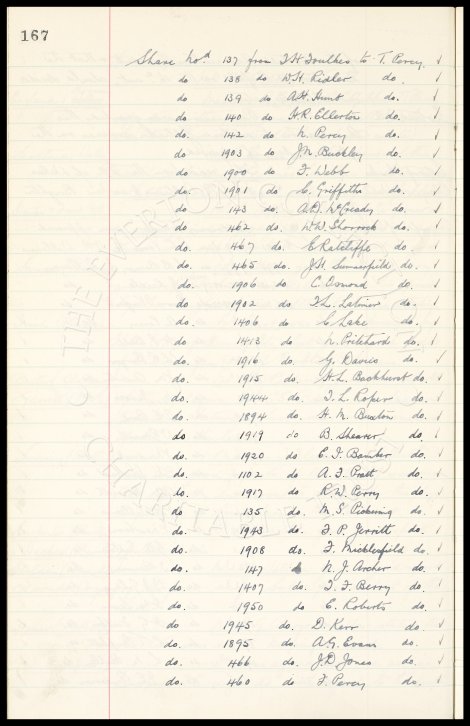 167
Share No.d 137 from T.H. Foulkes to T. Percy.
do 138 do W.H. Ridler do.
do 139 do A.H. Hunt do.
do 140 do H.R. Ellerton do.
do. 142 do N. Percy do.
do 1903 do J.N. Buckley do.
do 1900 do F. Webb do.
do. 1901 do. C. Griffiths do.
do. 143 do. A.D. McCready do.
do 462 do. W.W. Shorrock do.
do. 467 do. E Ratcliffe do.
do. 465 do. J.H. Summerfield do.
do. 1906 do C. Osmond do.
do 1902 do T.L. Latimer do.
do. 1406 do C Lake do.
do 1413 do N. Pritchard do.
do. 1916 do. G. Davies do.
do. 1915 do. H.L. Backhurst do.
do. 1944 do. T. L. Roper do.
do. 1894 do. H. M. Buxton do.
do 1919 do B. Shearer do.
do 1920 do E. J. Bamber do.
do. 1102 do A. F. Pratt do.
do. 1917 do R.W. Perry do.
do. 135 do. M. S. Pickering do.
do. 1943 do. F. P. Jerritt do.
do. 1908 do. F. Micklesfield do.
do. 147 N. J. Archer do.
do. 1407 do. T. F. Berry do.
do. 1950 do E. Roberts do.
do 1945 do. D. Kerr do
do. 1895 do. A.G. Evans do.
do. 466 do. J.D Jones do.
do. 460 do F. Percy do.
THE EVERTON
CHARITA